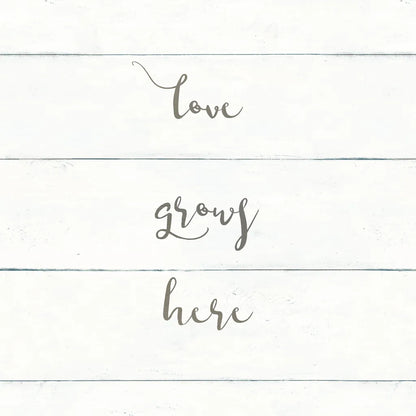 love
grows
here